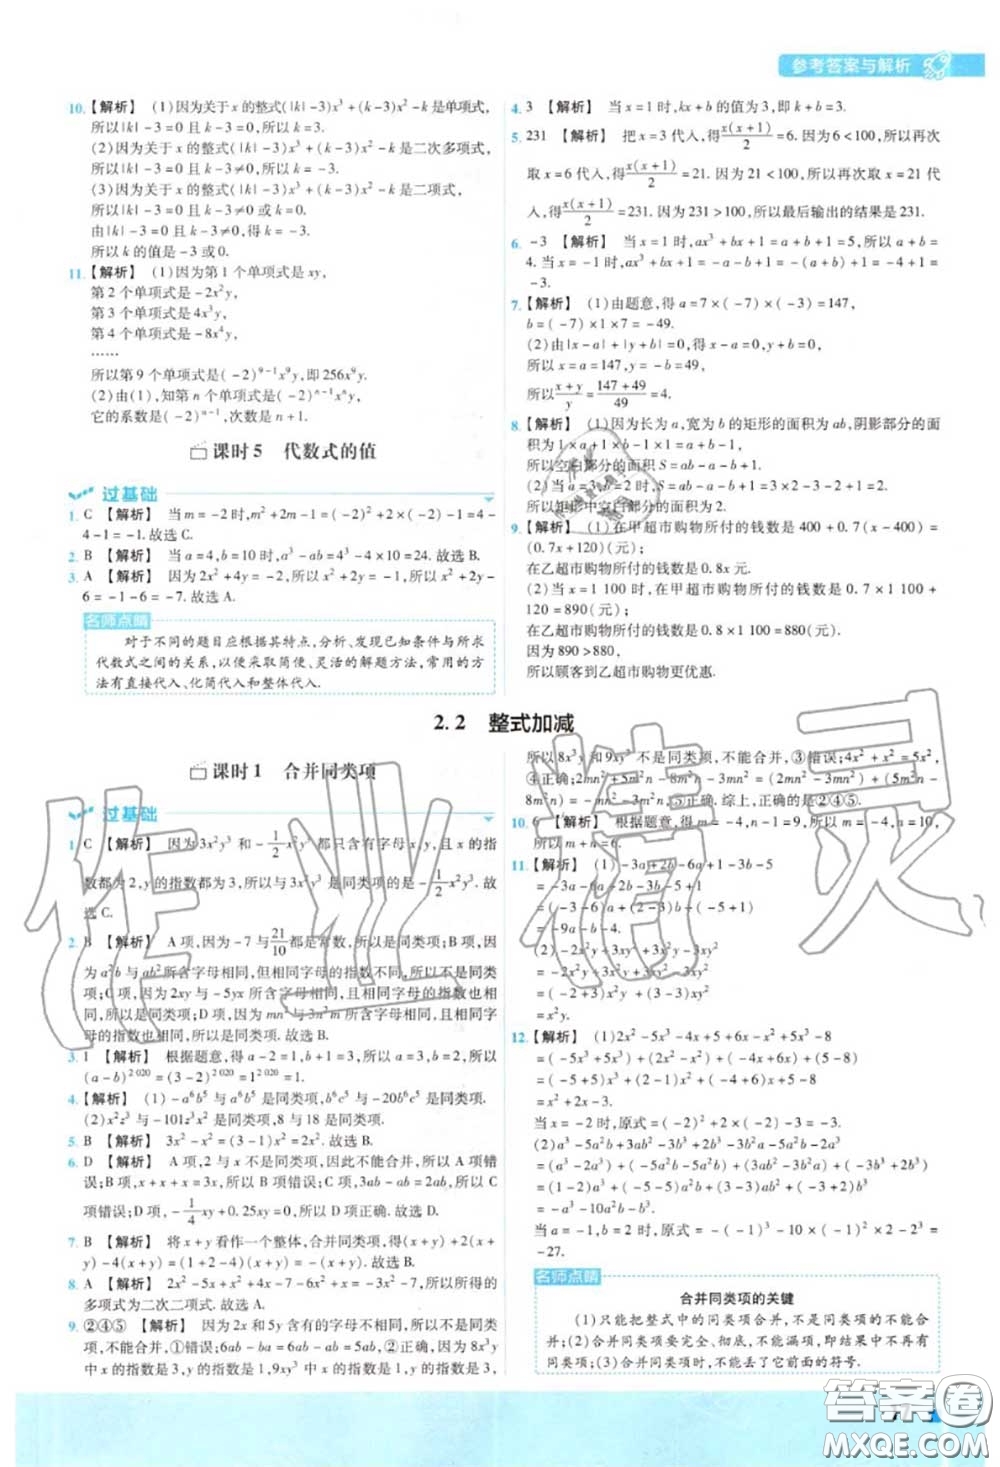 参考答案与解析
10.【解析】 (1)因为关于x的整式(|k|-3)x³+(k-3)x²-k是单项式,
所以|k|-3=0且k-3=0,所以k=3.
(2)因为关于x的整式(|k|-3)x³+(k-3)x²-k是二次多项式,
所以|k|-3=0且k-3≠0,所以k=-3.
(3)因为关于x的整式(|k|-3)x³+(k-3)x²-k是二项式,
所以|k|-3=0且k-3≠0或k=0.
由|k|-3=0且k-3≠0,得k=-3.
所以k的值是-3或0.
11.【解析】 (1)因为第1个单项式是xy,
第2个单项式是-2x²y,
第3个单项式是4x³y,
第4个单项式是-8x⁴y,
……
所以第9个单项式是(-2)⁹⁻¹x⁹y,即256x⁹y.
(2)由(1),知第n个单项式是(-2)ⁿ⁻¹xⁿy,
它的系数是(-2)ⁿ⁻¹,次数是n+1.
课时5 代数式的值
过基础
1. C 【解析】 当m=-2时,m²+2m-1=(-2)²+2×(-2)-1=4-
4-1=-1.故选C.
2. B 【解析】 当a=4,b=10时,a³-ab=4³-4×10=24.故选B.
3. A 【解析】 因为2x²+4y=-2,所以x²+2y=-1,所以x²+2y-
6=-1-6=-7.故选A.
名师点睛
对于不同的题目应根据其特点,分析、发现已知条件与所求
代数式之间的关系,以便采取简便、灵活的解题方法,常用的方
法有直接代入、化简代入和整体代入.
4. 3 【解析】 当x=1时,kx+b的值为3,即k+b=3.
5. 231 【解析】 把x=3代入,得x(x+1)/2=6.因为6<100,所以再次
取x=6代入,得x(x+1)/2=21.因为21<100,所以再次取x=21代
入,得x(x+1)/2=231.因为231>100,所以最后输出的结果是231.
6. -3 【解析】 当x=1时,ax³+bx+1=a+b+1=5,所以a+b=
4.当x=-1时,ax³+bx+1=-a-b+1=-(a+b)+1=-4+1=
-3.
7.【解析】 (1)由题意,得a=7×(-7)×(-3)=147,
b=(-7)×1×7=-49.
(2)由|x-a|+|y+b|=0,得x-a=0,y+b=0,
所以x=a=147,y=-b=49,
所以(x+y)/y=(147+49)/49=4.
8.【解析】 (1)因为长为a,宽为b的矩形的面积为ab,阴影部分的
面积为1×a+1×b-1×1=a+b-1,
所以空白部分的面积S=ab-a-b+1.
(2)当a=3,b=2时,S=6-3-2+1=2,
所以矩形中空白部分的面积为2.
9.【解析】 (1)在甲超市购物所付的钱数是400+0.7(x-400)=
(0.7x+120)(元);
在乙超市购物所付的钱数是0.8x元.
(2)当x=1 100时,在甲超市购物所付的钱数是0.7×1 100+
120=890(元);
在乙超市购物所付的钱数是0.8×1 100=880(元).
因为890>880,
所以顾客到乙超市购物更优惠.
2.2 整式加减
课时1 合并同类项
过基础
1. C 【解析】 因为3x²y³和-1/2x²y³都只含有字母x,y,且x的指
数都为2,y的指数都为3,所以与3x²y³是同类项的是-1/2x²y³.故
选C.
2. B 【解析】 A项,因为-7与21/10都是常数,所以是同类项;B项,因
为a²b与ab²所含字母相同,但相同字母的指数不同,所以不是同类
项;C项,因为2xy与-5yx所含字母相同,且相同字母的指数也相
同,所以是同类项;D项,因为mn³与3n³m所含字母相同,且相同字
母的指数也相同,所以是同类项.故选B.
3. 1 【解析】 根据题意,得a-2=1,b+1=3,所以a=3,b=2,所以
(a-b)²⁰²⁰=(3-2)²⁰²⁰=1²⁰²⁰=1.
4.【解析】 (1)-a⁶b⁵与a⁶b⁵是同类项,b⁶c⁵与-20b⁶c⁵是同类项.
(2)x²z³与-101z³x²是同类项,8与18是同类项.
5. B 【解析】 3x²-x²=(3-1)x²=2x².故选B.
6. D 【解析】 A项,2与x不是同类项,因此不能合并,所以A项错
误;B项,x+x+x=3x,所以B项错误;C项,3ab-ab=2ab,所以C
项错误;D项,-1/4xy+0.25xy=0,所以D项正确.故选D.
7. B 【解析】 将x+y看作一个整体,合并同类项,得(x+y)+2(x+
y)-4(x+y)=(1+2-4)(x+y)=-(x+y).故选B.
8. A 【解析】 2x²-5x+x²+4x-3x²-2=-x-2,所以得到的
多项式为二次二项式.故选A.
9. ②④⑤ 【解析】 因为2x和5y含有的字母不相同,所以不是同类
项,不能合并,①错误;6ab-ba=6ab-ab=5ab,②正确;因为8x³y
中x的指数是3,y的指数是1,9xy³中x的指数是1,y的指数是3,
所以8x³y和9xy³不是同类项,不能合并,③错误;4x²+x²=5x²,
④正确;2mn²+5m²n-8m²n-3mn²=(2mn²-3mn²)+(5m²n-
8m²n)=-mn²-3m²n,⑤正确.综上,正确的是②④⑤.
10. 6 【解析】 根据题意,得m=-4,n-1=9,所以m=-4,n=10,所
以m+n=6.
11.【解析】 (1)-3a+2b-6a+1-3b-5
=-3a-6a+2b-3b+1-5
=(-3a-6a)+(2b-3b)+(-5+1)
=-9a-b-4.
=(-2+3)x²y+(3-3)xy²
=x²y.
12.【解析】 (1)2x²-5x³-4x+5+6x-x²+5x³-8
=(-5x³+5x³)+(2x²-x²)+(-4x+6x)+(5-8)
=x²+2x-3.
当x=-2时,原式=(-2)²+2×(-2)-3=-3.
当a=-1,b=2时,原式=-(-1)³-10×(-1)²×2-(-1)×2²=
-27.
名师点睛
合并同类项的关键
(1)只能把整式中的同类项合并,不是同类项的不能合
并;(2)合并同类项要完全、彻底,不能漏项,即结果中不再有
同类项;(3)合并同类项时,不能丢了它前面的符号.
作业精灵
答案圈
MXQE.COM